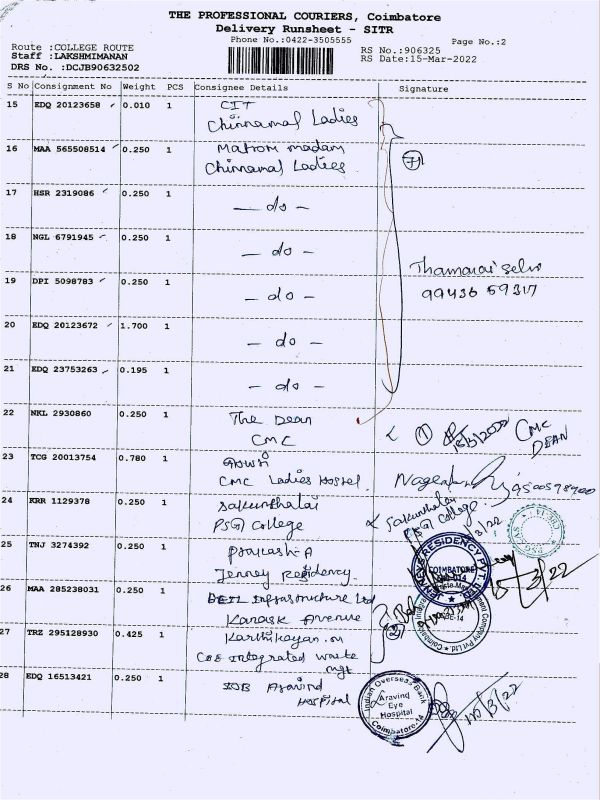 THE PROFESSIONAL COURIERS, Coimbatore
Delivery Runsheet - SITR
Phone No.:0422-3505555
Page No.:2
Route :COLLEGE ROUTE
Staff :LAKSHMIMANAN
DRS No. :DCJB90632502
RS No.:906325
RS Date:15-Mar-2022
S No Consignment No Weight PCS Consignee Details Signature
15 EDQ 20123658 0.010 1 CIT
Chinnamal Ladies
16 MAA 565508514 0.250 1 Matron madam
Chinnamal Ladies
17 HSR 2319086 0.250 1 - do -
18 NGL 6791945 0.250 1 - do -
19 DPI 5098783 0.250 1 - do -
Thamarai Selvi
99436 59317
20 EDQ 20123672 1.700 1 - do -
21 EDQ 23753263 0.195 1 - do -
22 NKL 2930860 0.250 1 The Dean
CMC
① CMC
DEAN
23 TCG 20013754 0.780 1
CMC Ladies Hostel
24 KRR 1129378 0.250 1 Sakunthalai
PSG College
Sakunthalai
PSG College
25 TNJ 3274392 0.250 1 Prakash A
Jenney Residency
JENNEYS RESIDENCY PVT. LTD
COIMBATORE
15/3/22
26 MAA 285238031 0.250 1 Infrastructure Ltd
Avenue
27 TRZ 295128930 0.425 1 Karthikayan.m
Integrated waste
mgt
②
28 EDQ 16513421 0.250 1 IOB Aravind
Hospital
Indian Overseas Bank
Aravind
Eye
Hospital
Coimbatore-14
15/3/22